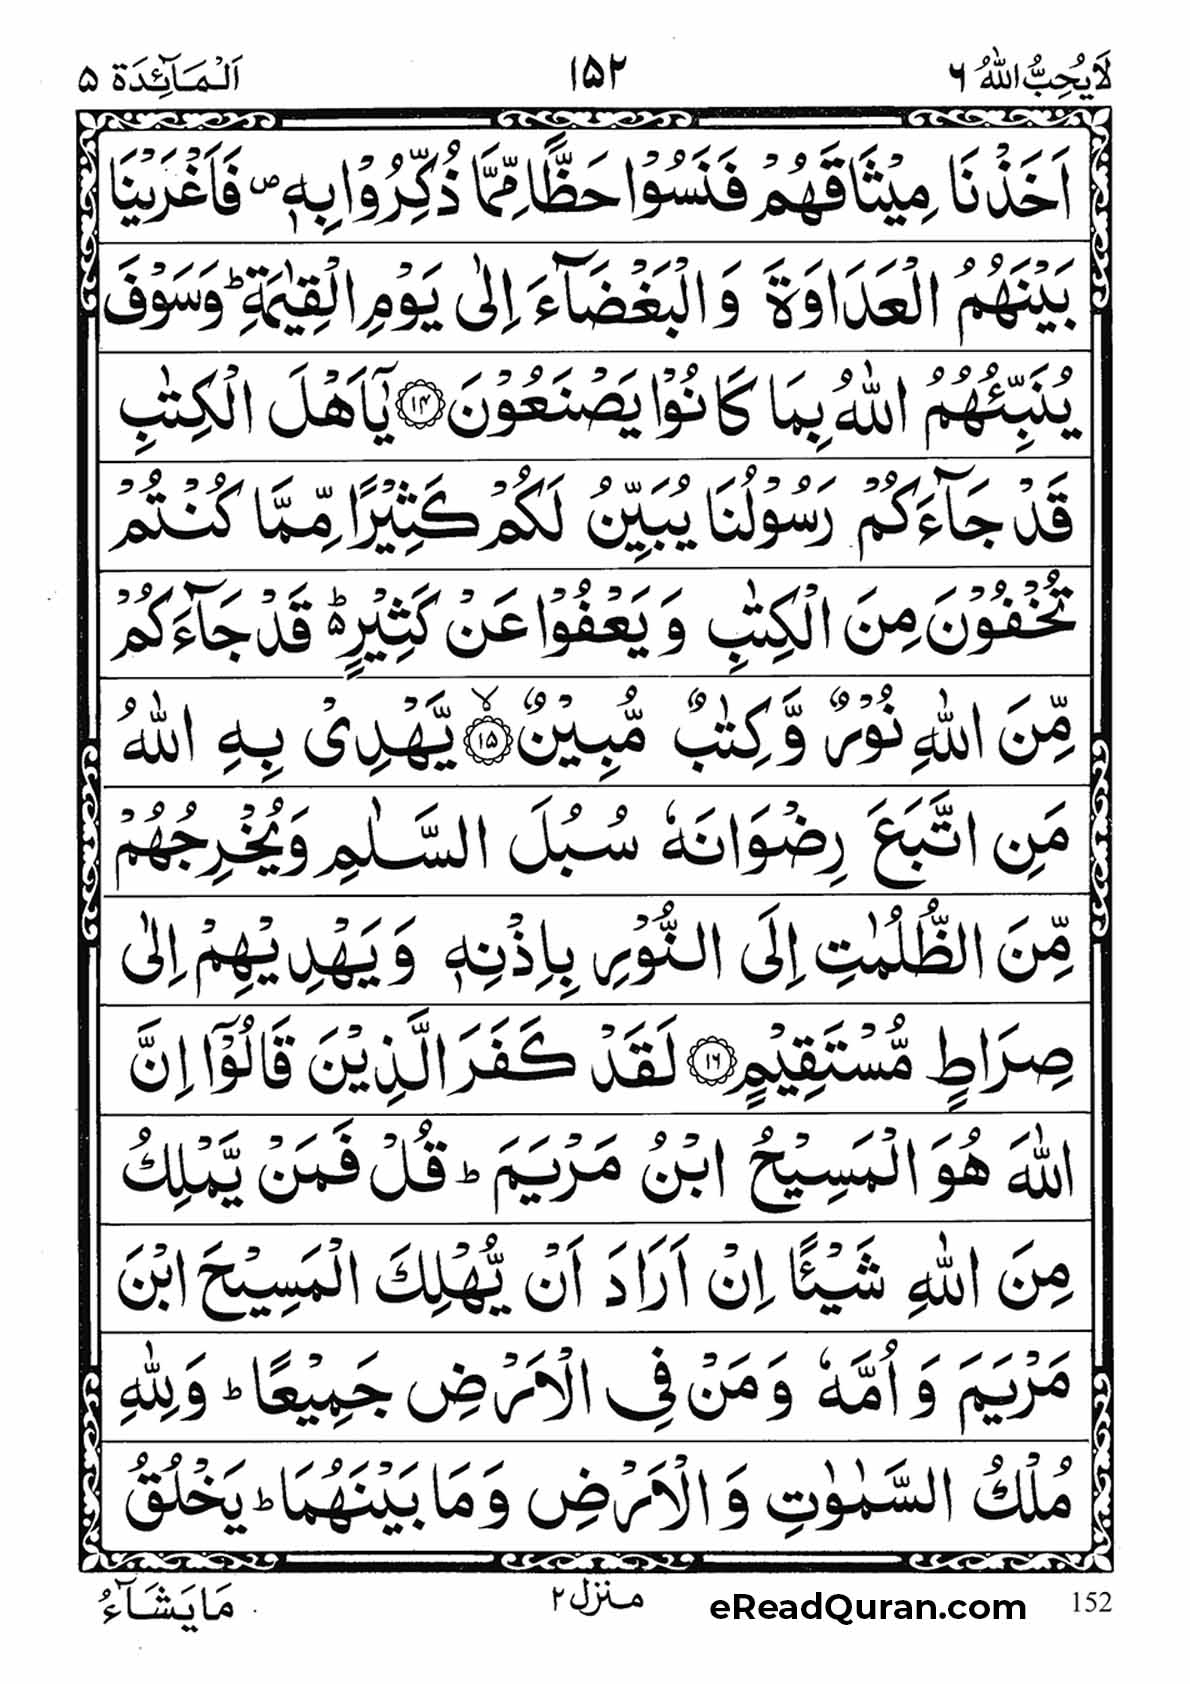 لَا يُحِبُّ اللّٰهُ ۶ ۱۵۲ اَلْمَآئِدَة ۵
اَخَذْنَا مِيْثَاقَهُمْ فَنَسُوْا حَظًّا مِّمَّا ذُكِّرُوْا بِهٖ ۪ فَاَغْرَيْنَا
بَيْنَهُمُ الْعَدَاوَةَ وَ الْبَغْضَآءَ اِلٰى يَوْمِ الْقِيٰمَةِ ؕ وَسَوْفَ
يُنَبِّئُهُمُ اللّٰهُ بِمَا كَانُوْا يَصْنَعُوْنَ ۝۱۴ يٰۤاَهْلَ الْكِتٰبِ
قَدْ جَآءَكُمْ رَسُوْلُنَا يُبَيِّنُ لَكُمْ كَثِيْرًا مِّمَّا كُنْتُمْ
تُخْفُوْنَ مِنَ الْكِتٰبِ وَ يَعْفُوْا عَنْ كَثِيْرٍ ؕ۬ قَدْ جَآءَكُمْ
مِّنَ اللّٰهِ نُوْرٌ وَّ كِتٰبٌ مُّبِيْنٌ ۝۱۵ۙ يَّهْدِىْ بِهِ اللّٰهُ
مَنِ اتَّبَعَ رِضْوَانَهٗ سُبُلَ السَّلٰمِ وَيُخْرِجُهُمْ
مِّنَ الظُّلُمٰتِ اِلَى النُّوْرِ بِاِذْنِهٖ وَ يَهْدِيْهِمْ اِلٰى
صِرَاطٍ مُّسْتَقِيْمٍ ۝۱۶ لَقَدْ كَفَرَ الَّذِيْنَ قَالُوْۤا اِنَّ
اللّٰهَ هُوَ الْمَسِيْحُ ابْنُ مَرْيَمَ ؕ قُلْ فَمَنْ يَّمْلِكُ
مِنَ اللّٰهِ شَيْئًا اِنْ اَرَادَ اَنْ يُّهْلِكَ الْمَسِيْحَ ابْنَ
مَرْيَمَ وَ اُمَّهٗ وَ مَنْ فِى الْاَرْضِ جَمِيْعًا ؕ وَلِلّٰهِ
مُلْكُ السَّمٰوٰتِ وَ الْاَرْضِ وَ مَا بَيْنَهُمَا ؕ يَخْلُقُ
مَا يَشَآءُ منزل ۲ eReadQuran.com 152